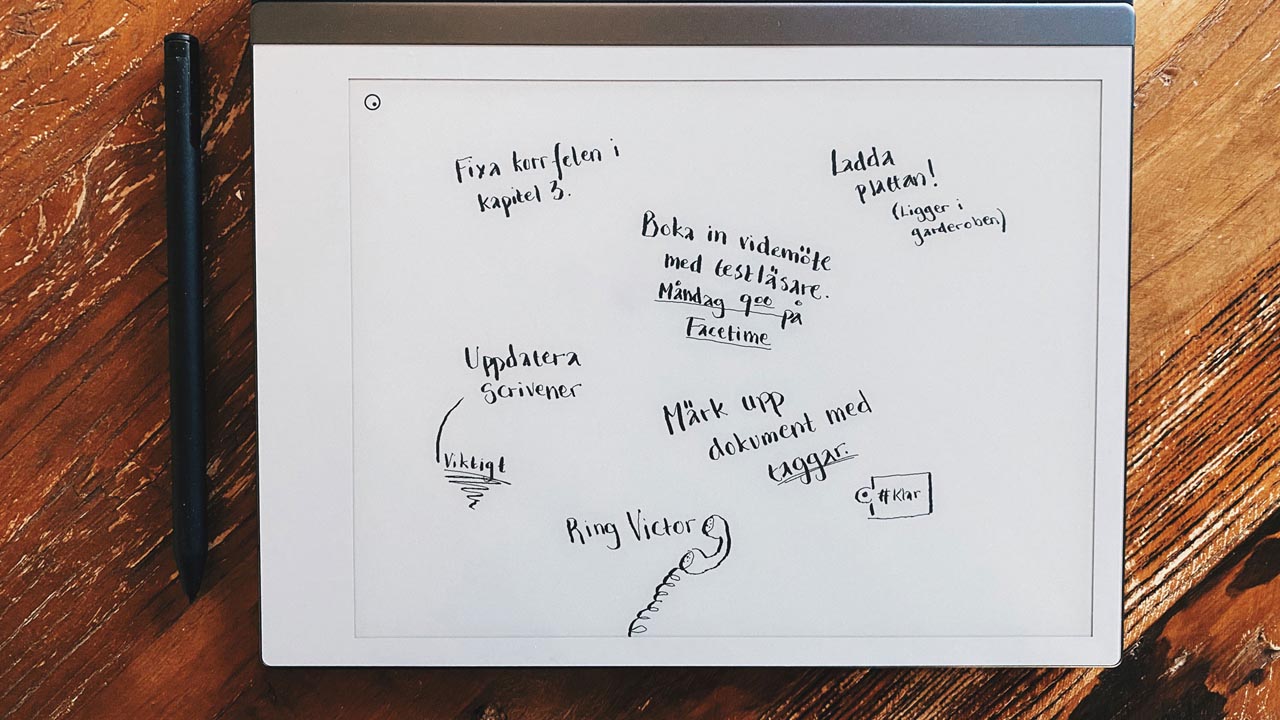 Fixa korrfelen i
kapitel 3.
Ladda
plattan!
(Ligger i
garderoben)
Boka in videmöte
med testläsare.
Måndag 9⁰⁰ på
Facetime
Uppdatera
Scrivener
Viktigt
Märk upp
dokument med
taggar.
#Klar
Ring Victor